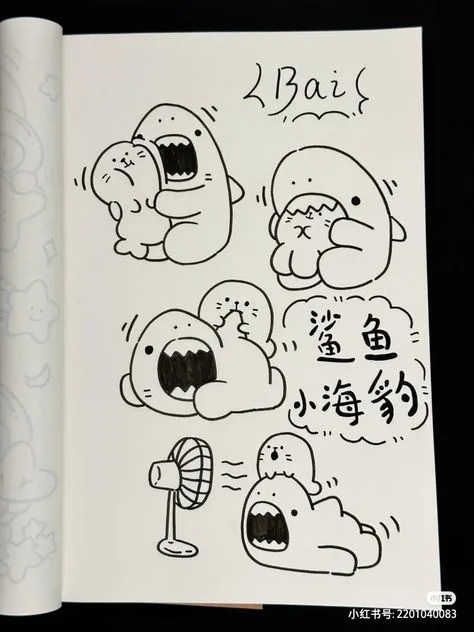 Bai
鲨鱼
小海豹
小红书
小红书号: 2201040083